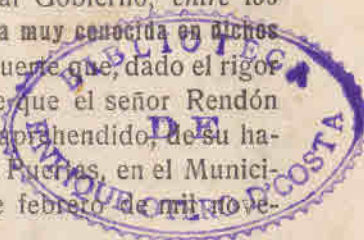 al Gobierno, entre los
a muy conocida en dichos
uerte que, dado el rigor
e que el señor Rendón
aprehendido, de su ha-
Puertas, en el Munici-
e febrero de mil nove-
BIBLIOTECA
DE
ENRIQUE OTERO D'COSTA